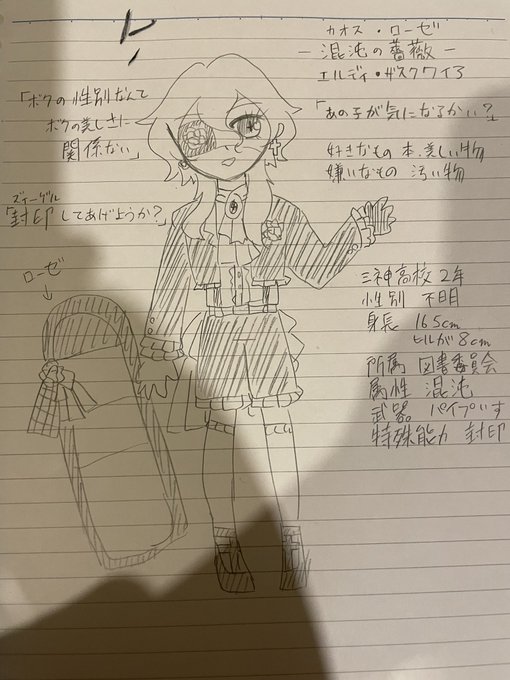 カオス・ローゼ
ー混沌の薔薇ー
エルディ・ガスクワイア
「ボクの性別なんて
ボクの美しさに
関係ない」
「あの子が気になるかい?」
好きなもの 本、美しい物
嫌いなもの 汚い物
ズィーゲル
「封印してあげようか?」
ローゼ
三神高校 2年
性別 不明
身長 165cm
ヒールが8cm
所属 図書委員会
属性 混沌
武器 パイプいす
特殊能力 封印